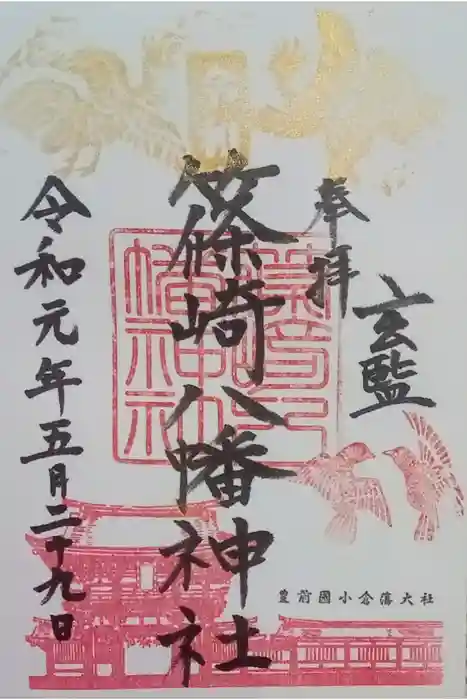 奉拝
玄監
篠崎八幡神社
令和元年五月二十九日
豊前國小倉藩大社